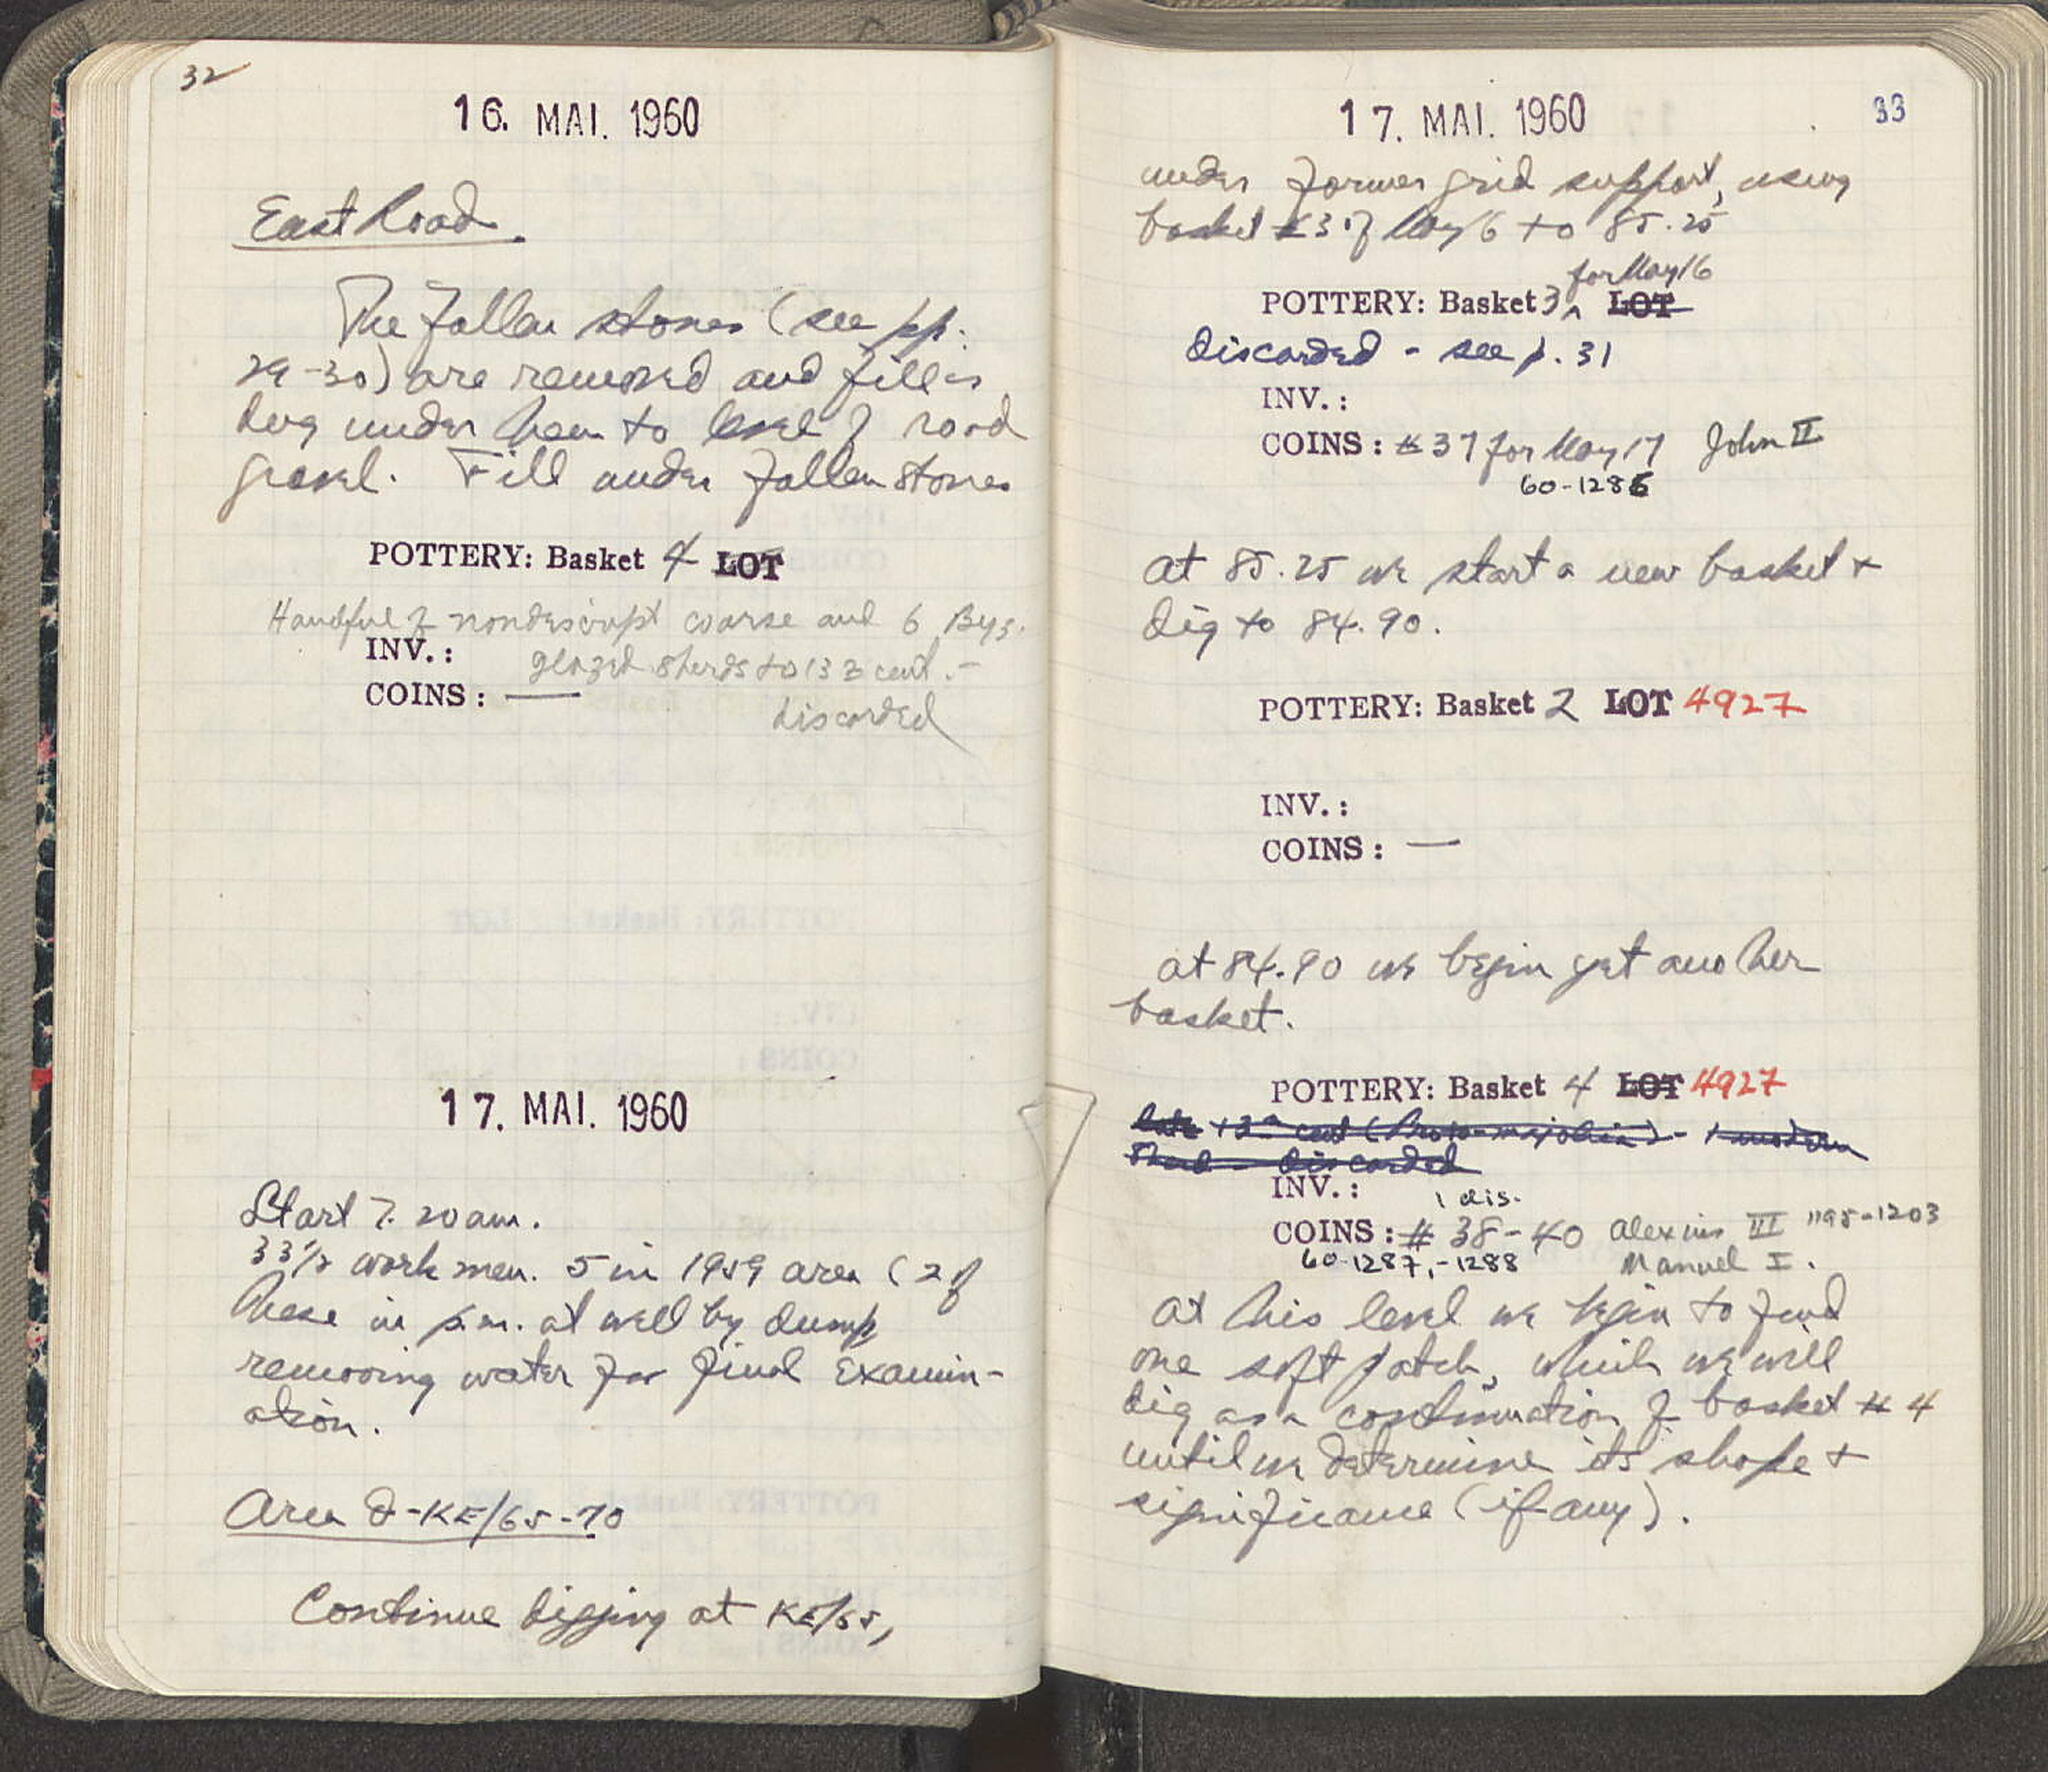 32
16. MAI. 1960
East Road.
The fallen stones (see pp.
29-30) are removed and fill is
dug under them to level of road
gravel. Fill under fallen stones
POTTERY: Basket 4 LOT
Handful of nondescript coarse and 6 Byz.
INV.: glazed sherds to 13th cent. -
COINS: — discarded
17. MAI. 1960
Start 7.20 am.
33½ workmen. 5 in 1959 area (2 of
these in p.m. at well by dump
removing water for final examin-
ation.
Area -KE/65-70
Continue digging at KE/65,
33
17. MAI. 1960
under former grid support, using
basket #3 of May 16 to 85.25
for May 16
POTTERY: Basket 3 ^ LOT
discarded - see p. 31
INV.:
COINS: #37 for May 17 John II
60-1286
At 85.25 we start a new basket +
dig to 84.90.
POTTERY: Basket 2 LOT 4927
INV.:
COINS: —
At 84.90 we begin yet another
basket.
POTTERY: Basket 4 LOT 4927
late 13th cent (Proto-majolica) - 1 modern
sherd - discarded
INV.:
1 dis.
COINS: # 38-40 Alexius III 1195-1203
60-1287,-1288 Manuel I.
At this level we begin to find
one soft patch, which we will
dig as a continuation of basket #4
until we determine its shape +
significance (if any).